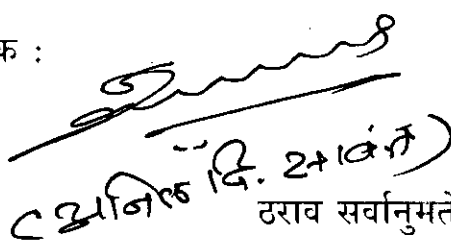 क :
(अनिल दि. सावंत)
ठराव सर्वानुमते